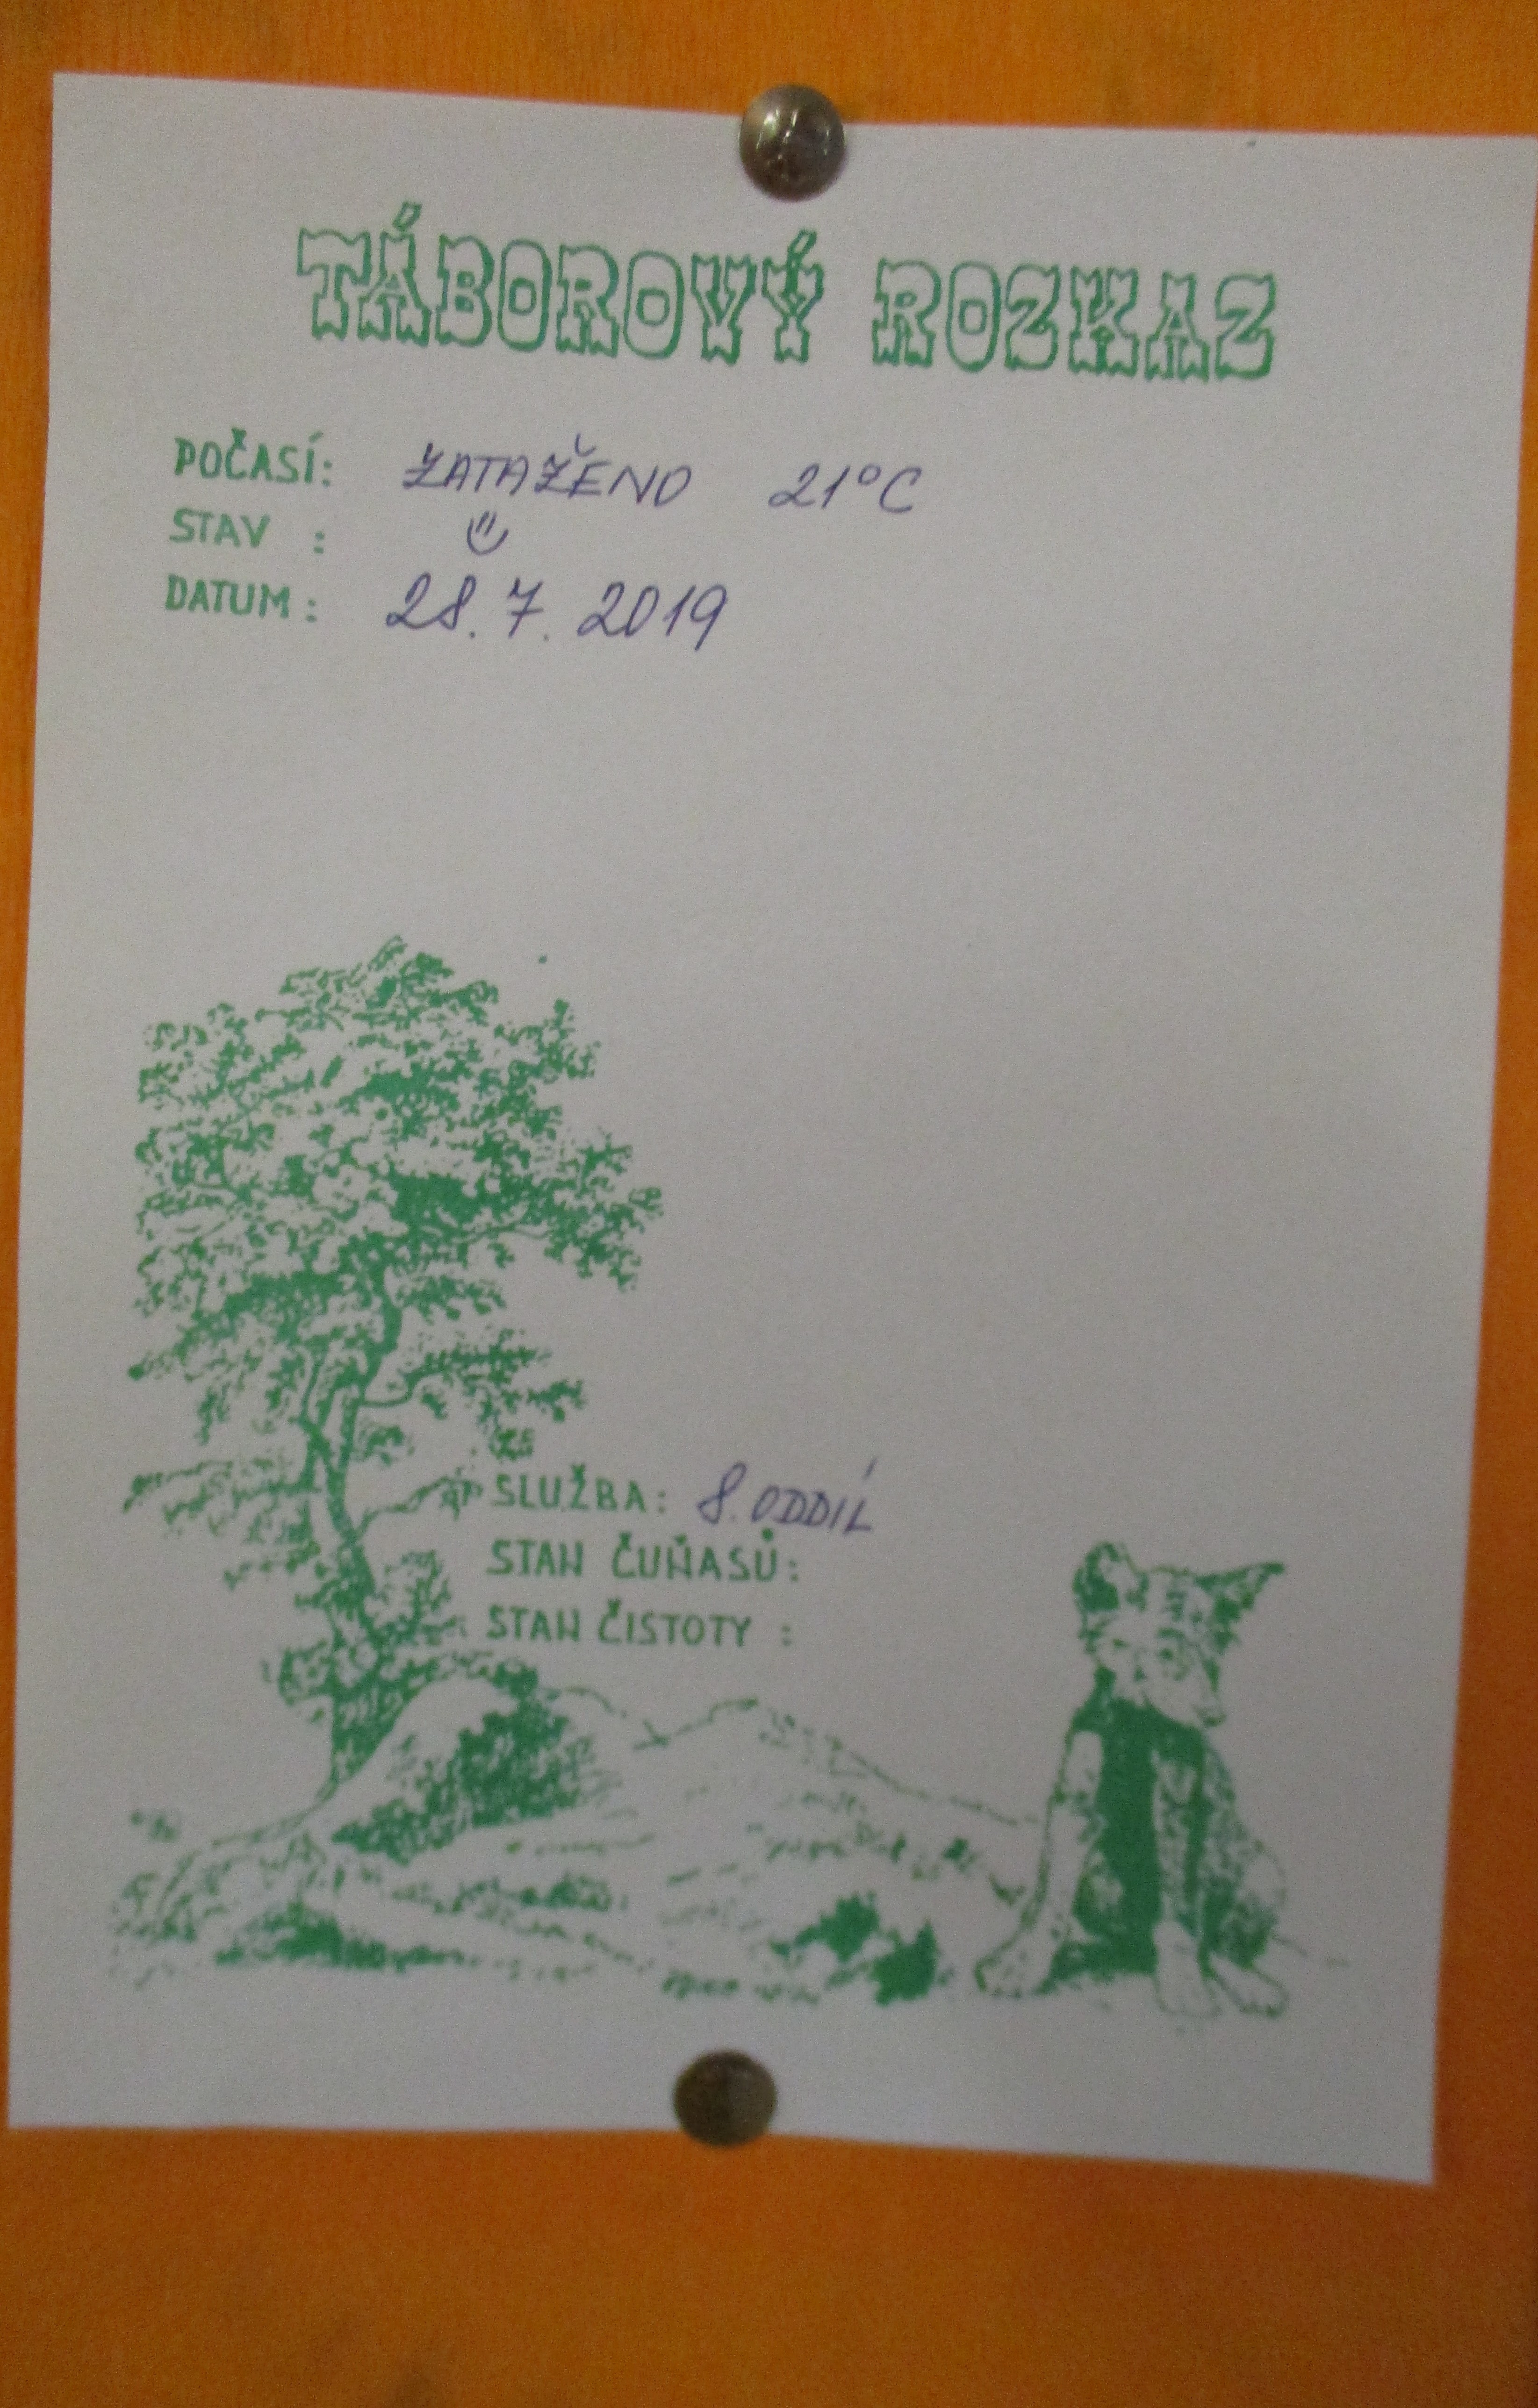 TÁBOROVÝ ROZKAZ
POČASÍ: ZATAŽENO 21°C
STAV :
DATUM: 28.7.2019
SLUŽBA: 8.ODDÍL
STAN ČUŇASŮ:
STAN ČISTOTY :